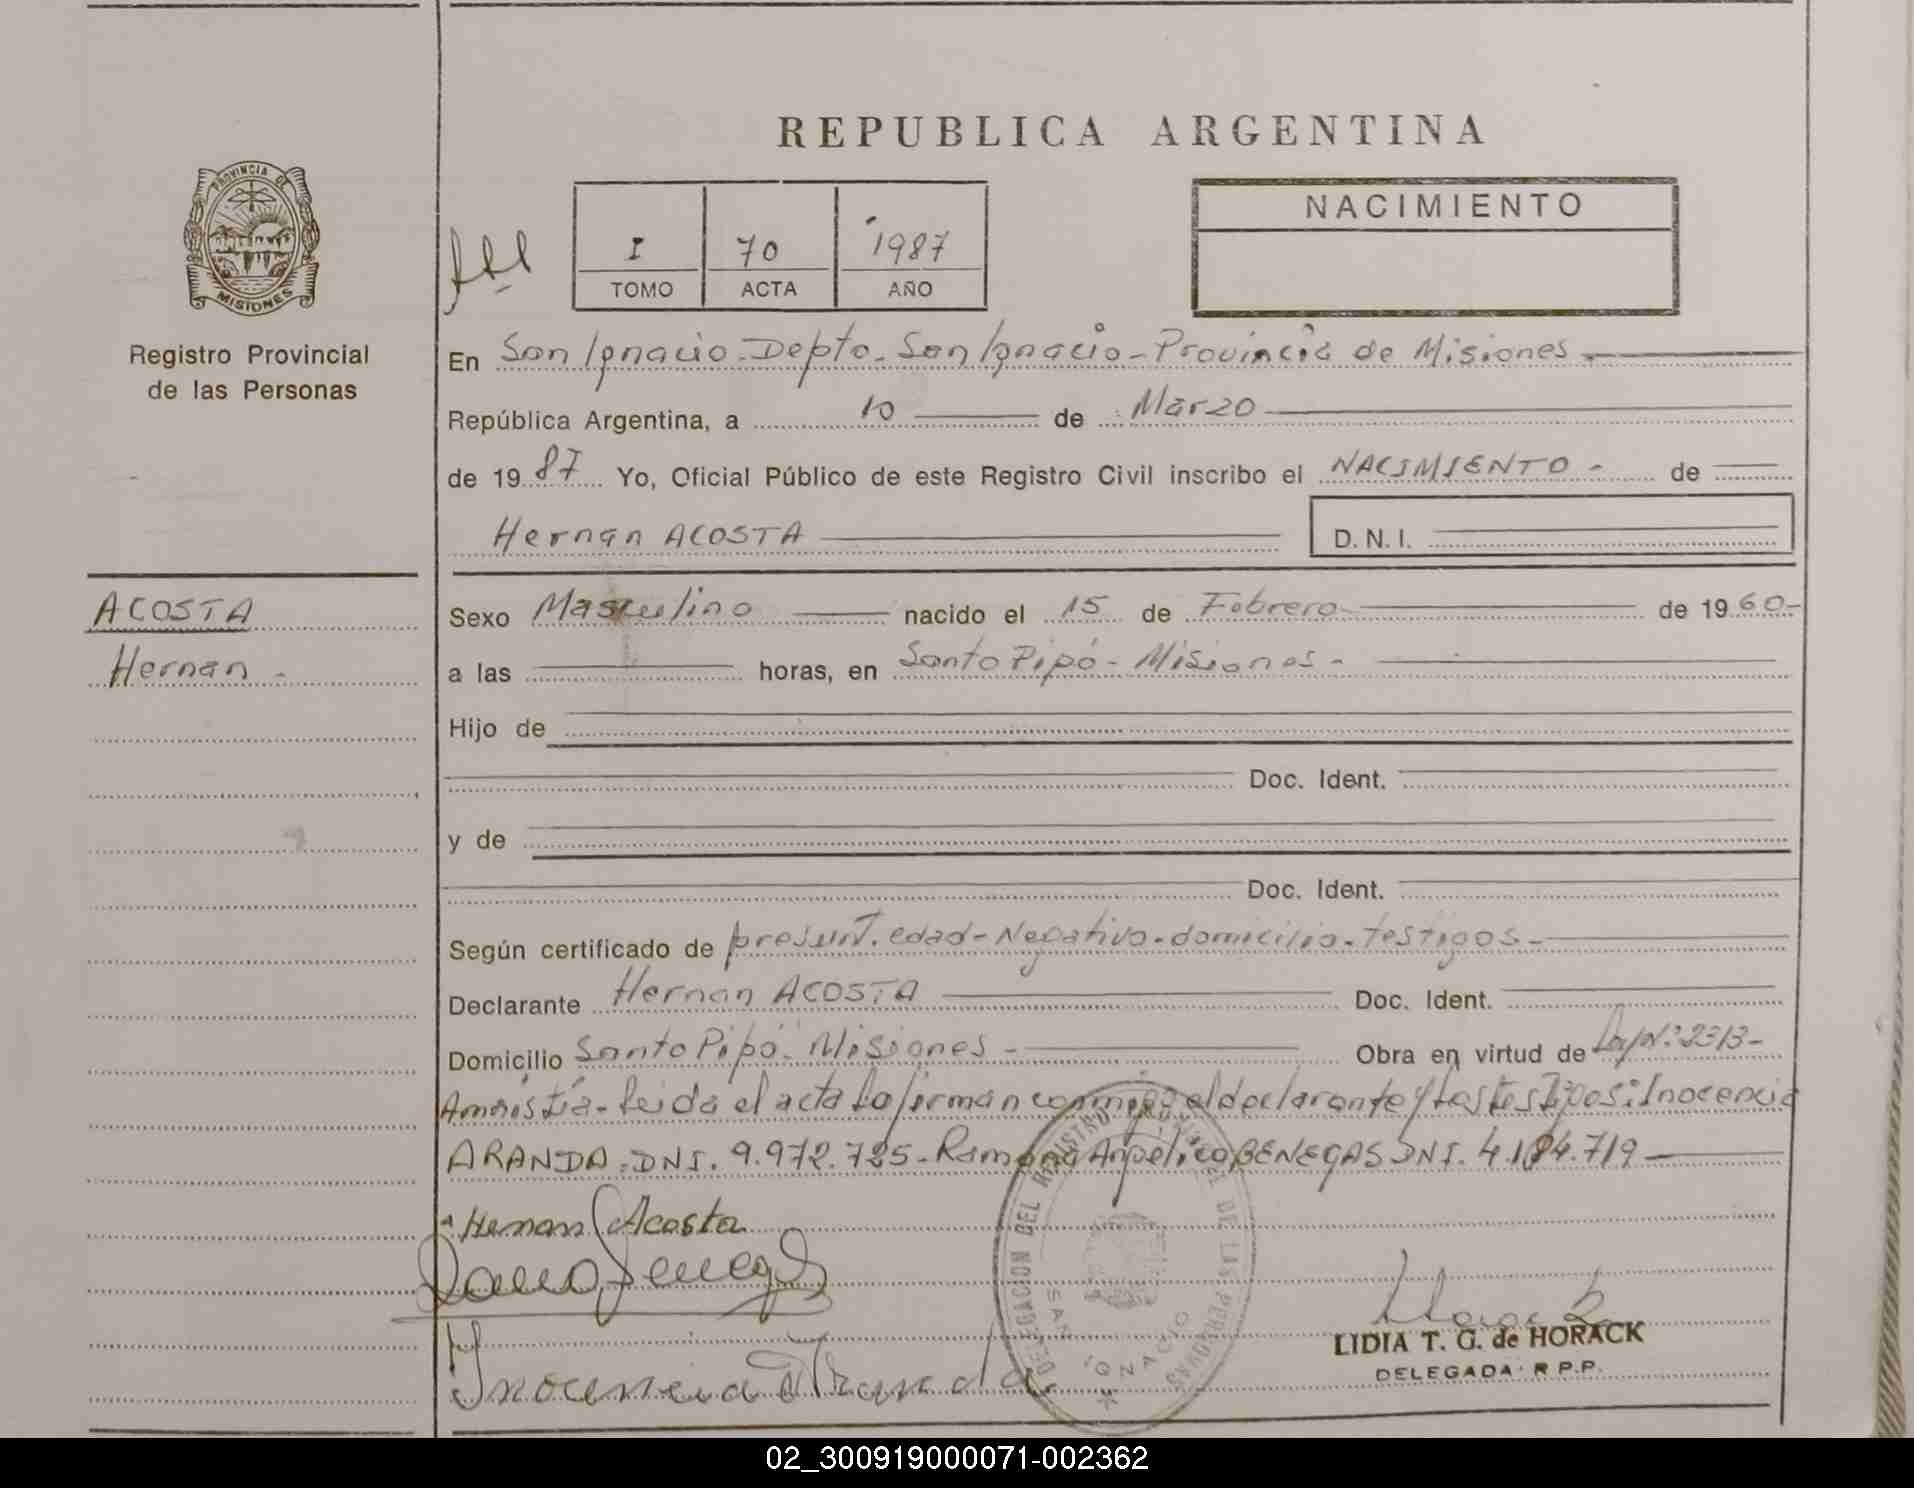 REPUBLICA ARGENTINA
PROVINCIA DE
MISIONES
Registro Provincial
de las Personas
I 70 1987
TOMO ACTA AÑO
NACIMIENTO
En San Ignacio - Depto. San Ignacio - Provincia de Misiones -
República Argentina, a 10 de Marzo
de 1987 Yo, Oficial Público de este Registro Civil inscribo el NACIMIENTO - de
Hernan ACOSTA D.N.I.
ACOSTA
Hernan -
Sexo Masculino nacido el 15 de Febrero de 1960-
a las horas, en Santo Pipó - Misiones -
Hijo de
Doc. Ident.
y de
Doc. Ident.
Según certificado de presunt. edad - Negativo - domicilio - testigos -
Declarante Hernan ACOSTA Doc. Ident.
Domicilio Santo Pipó - Misiones - Obra en virtud de Ley Nº 2313-
Amnistía - Leida el acta la firman conmigo el declarante y los testigos: Inocencia
ARANDA - DNI. 9.972.725 - Ramona Angelica BENEGAS DNI. 4.184.719
Hernan Acosta
Inocencia Aranda
DELEGACION DEL REGISTRO PROVINCIAL DE LAS PERSONAS
SAN IGNACIO
LIDIA T. G. de HORACK
DELEGADA R.P.P.
02_300919000071-002362